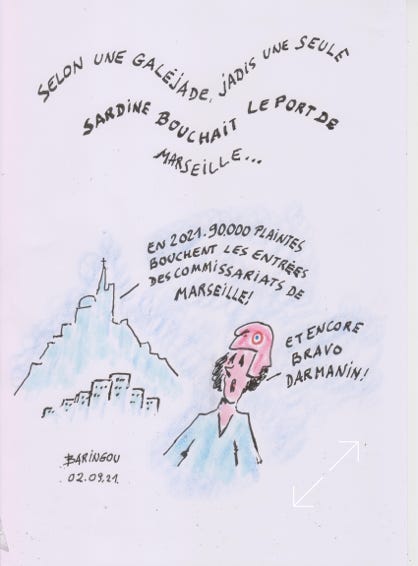 SELON UNE GALÉJADE, JADIS UNE SEULE
SARDINE BOUCHAIT LE PORT DE
MARSEILLE...
EN 2021.90.000 PLAINTES
BOUCHENT LES ENTRÉES
DES COMMISSARIATS DE
MARSEILLE!
ET ENCORE
BRAVO
DARMANIN!
BARINGOU
02.09.21